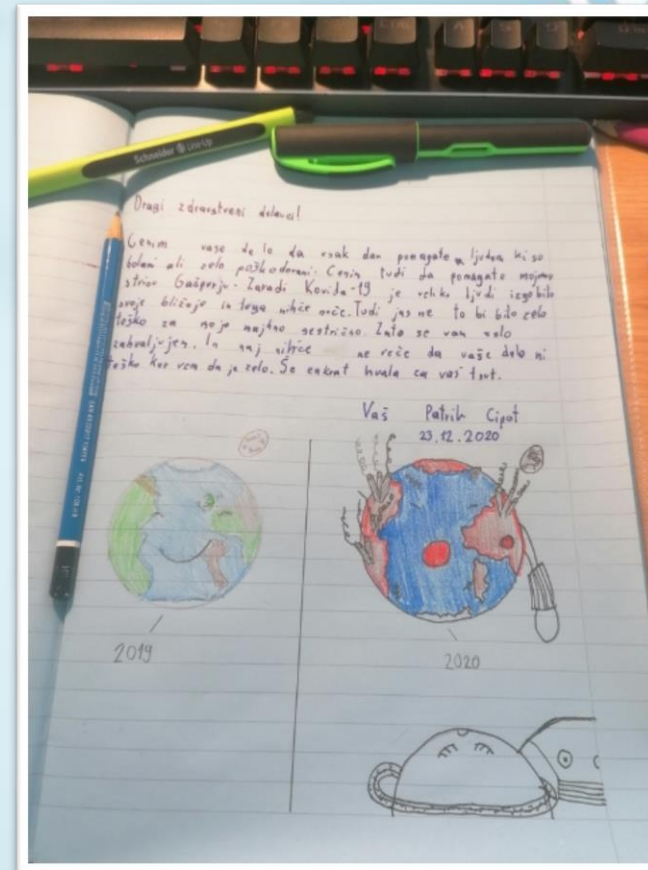 Schneider Line-Up
Dragi zdravstveni delavci!
Cenim vaše delo da vsak dan pomagate ljudem ki so
bolani ali zelo poškodovani. Cenim tudi da pomagate mojemu
stricu Gašperju. Zaradi Kovida-19 je veliko ljudi izgubilo
svoje bližnje in tega nihče noče. Tudi jaz ne to bi bilo zelo
teško za mojo majhno sestrično. Zato se vam zelo
zahvaljujem. In naj nihče ne reče da vaše delo ni
teško ker vem da je zelo. Še enkrat hvala za vaš trut.
Vaš Patrik Cipot
23.12.2020
2019
2020